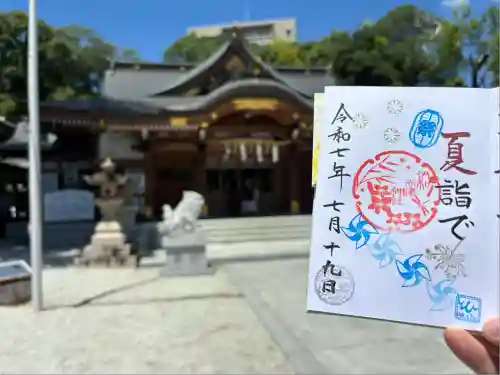 夏詣で
令和七年
七月十九日